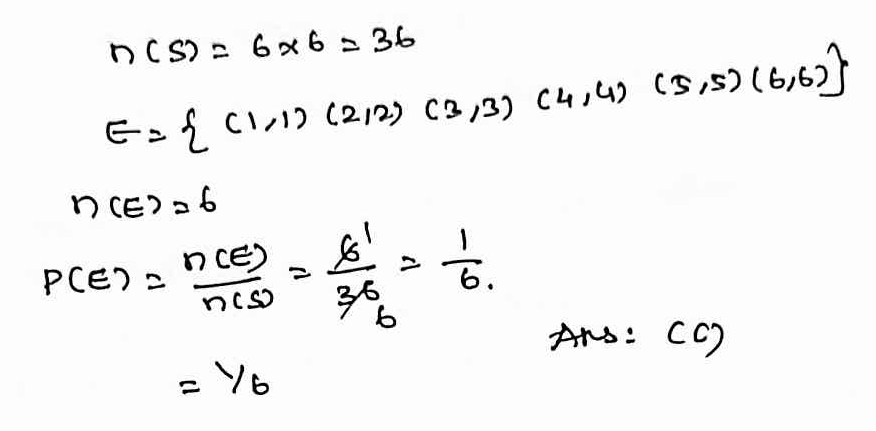 n(S) = 6×6 = 36
E = { (1,1) (2,2) (3,3) (4,4) (5,5) (6,6)}
n(E) = 6
P(E) = n(E)/n(S) = 6 1/36 6 = 1/6.
Ans: (C)
= 1/6